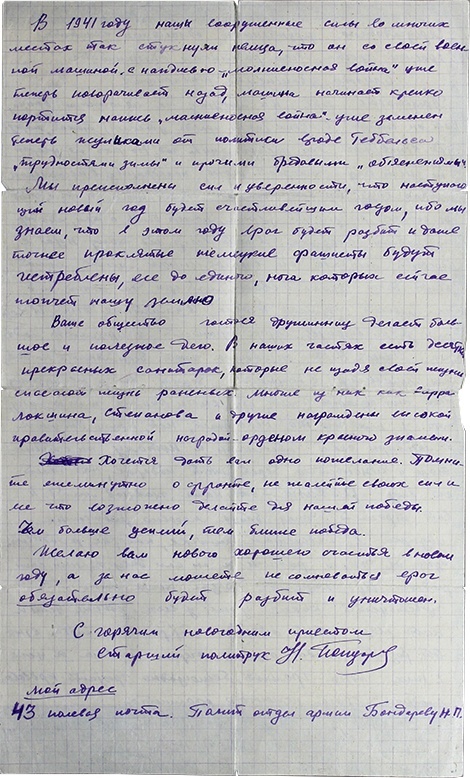 В 1941 году наши вооруженные силы во многих
местах так стукнули немца, что он со своей воен
ной машиной, с надписью „молниеносная война" уже
теперь поворачивает назад, машина начинает крепко
портится надпись „молниеносная война" уже заменен
теперь жуликами от политики вроде Геббельса
„трудностями зимы" и прочими бредовыми „объяснениями"
Мы преисполнены сил и уверенности, что наступаю
щий новый год будет счастливейшим годом, ибо мы
знаем, что в этом году враг будет разбит и даже
точнее проклятые немецкие фашисты будут
истреблены, все до единого, нога которых сейчас
топчет нашу землю
Ваше общество готовя дружинниц делает боль
шое и полезное дело. В наших частях есть десятки
прекрасных санитарок, которые не щадя своей жизни
спасают жизнь раненых. Многие из них как
Локшина, Степанова и другие награждены высокой
правительственной наградой-орденом красного знамени.
Хочется дать вам одно пожелание. Помни
те ежеминутно о фронте, не жалейте своих сил и
все что возможно делайте для нашей победы.
Чем больше усилий, тем ближе победа.
Желаю вам нового хорошего счастья в новом
году, а за нас можете не сомневаться враг
обязательно будет разбит и уничтожен.
С горячим новогодним приветом
Старший политрук Н. Бондарев
Мой адрес
43 полевая почта. Полит отдел армии Бондареву Н.П.